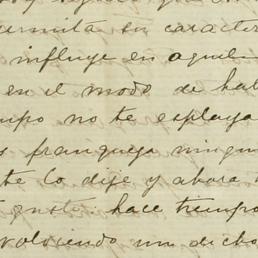 su caracter
influye en aquel
en el modo de hab
mpo no te esplaya
s franqueja ningun
te lo dije y ahora
gusto hace tiempo
un dicho